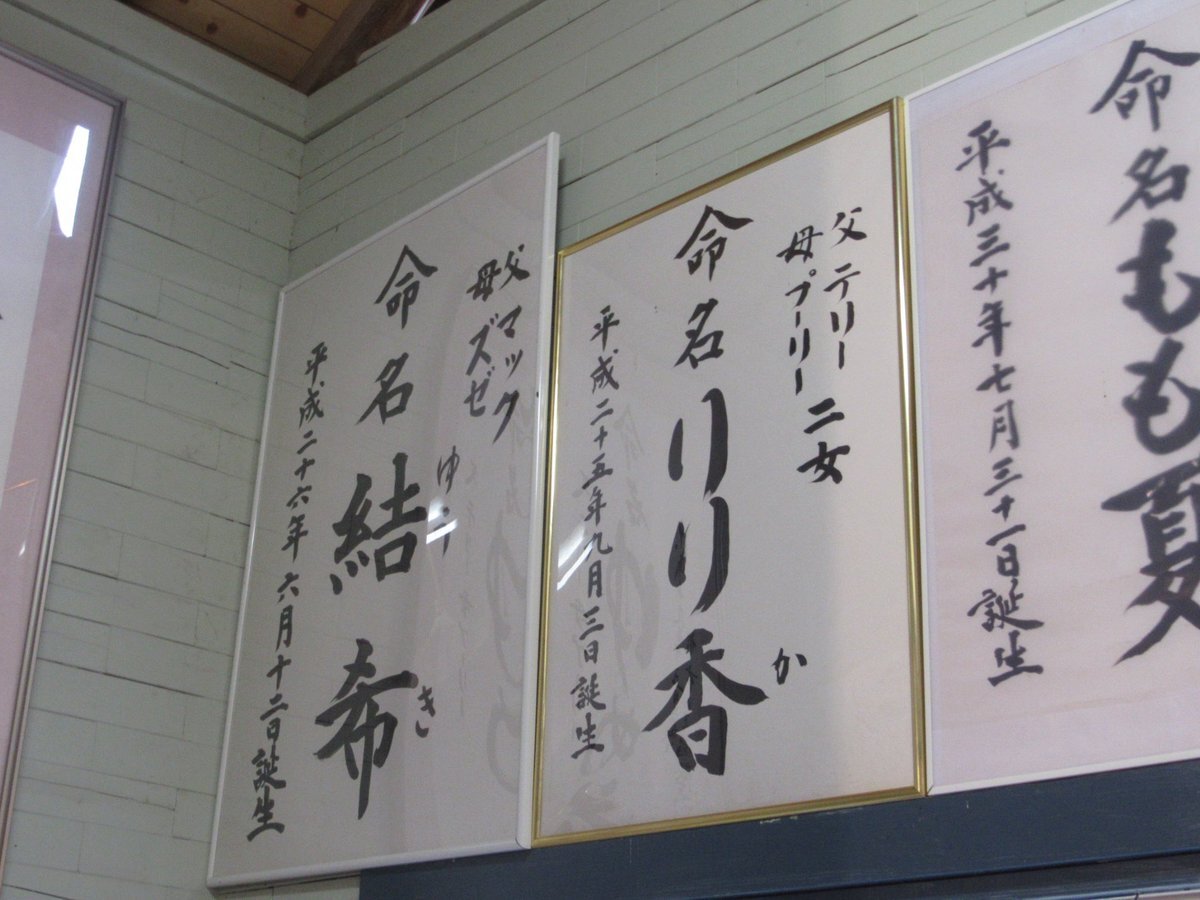 命名もも夏
平成三十年七月三十一日誕生
父 テリー 二女
母 プーリー
か
命名りり香
平成二十五年九月三日誕生
父 マック
母 ズゼ
ゆ
き
命名結希
平成二十六年六月十二日誕生